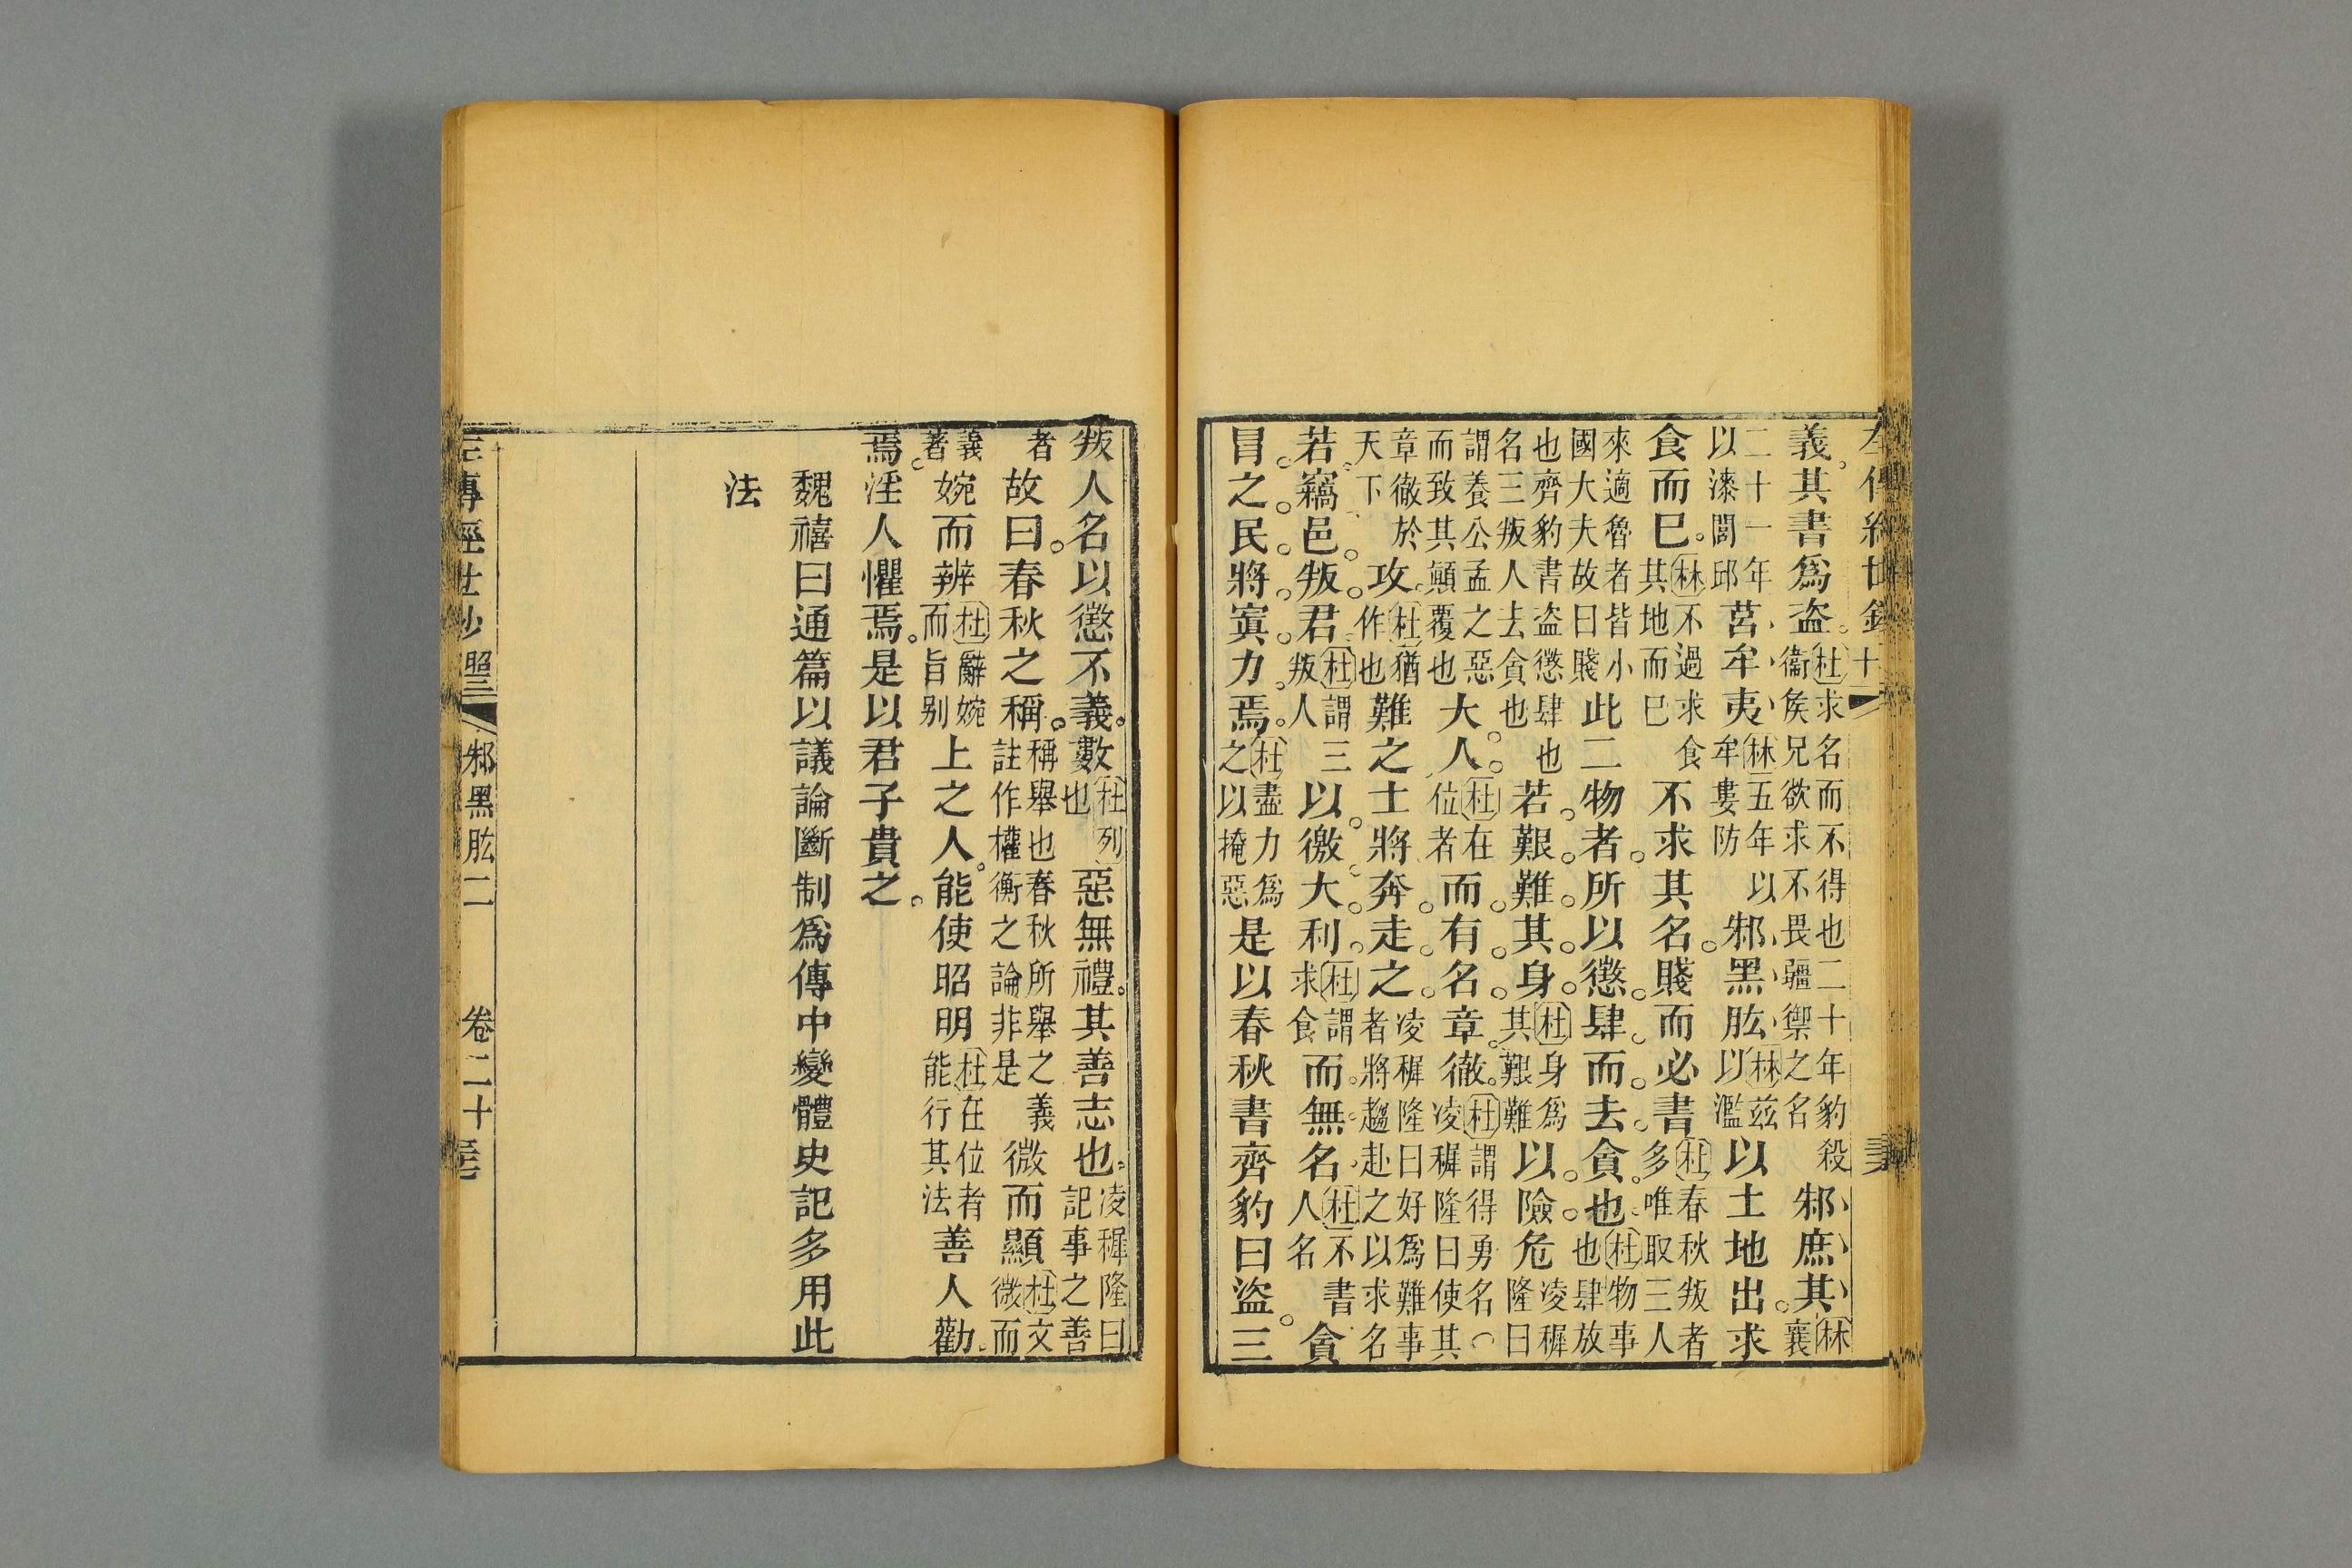 義其書爲盜杜求名而不得也二十年豹殺衞侯兄欲求不畏彊禦之名邾庶其林襄
二十一年以漆閭邱莒牟夷林五年以牟婁防邾黑肱林兹以濫以土地出求
食而已林不過求食其地而已不求其名賤而必書杜春秋叛者多唯取三人
來適魯者皆小國大夫故曰賤此二物者所以懲肆而去貪也杜物事也肆放
也齊豹書盜懲肆也名三叛人去貪也若艱難其身杜身爲其艱難以險危凌穉隆曰
謂養公孟之惡而致其顛覆也大人杜在位者而有名章徹杜謂得勇名︵凌穉隆曰使其
章徹於天下攻杜猶作也難之士將奔走之凌穉隆曰好爲難事者將趨赴之以求名
若竊邑叛君杜謂三叛人以徼大利杜謂求食而無名杜不書人名貪
冒之民將寘力焉杜盡力爲之以掩惡是以春秋書齊豹曰盜三
叛人名以懲不義數杜列也惡無禮其善志也凌穉隆曰記事之善
者故曰春秋之稱稱舉也春秋所舉之義註作權衡之論非是微而顯杜文微而
義著婉而辨杜辭婉而旨別上之人能使昭明杜在位者能行其法善人勸
焉淫人懼焉是以君子貴之
魏禧曰通篇以議論斷制爲傳中變體史記多用此
法
左傳經世鈔 昭三 邾黑肱二 卷二十